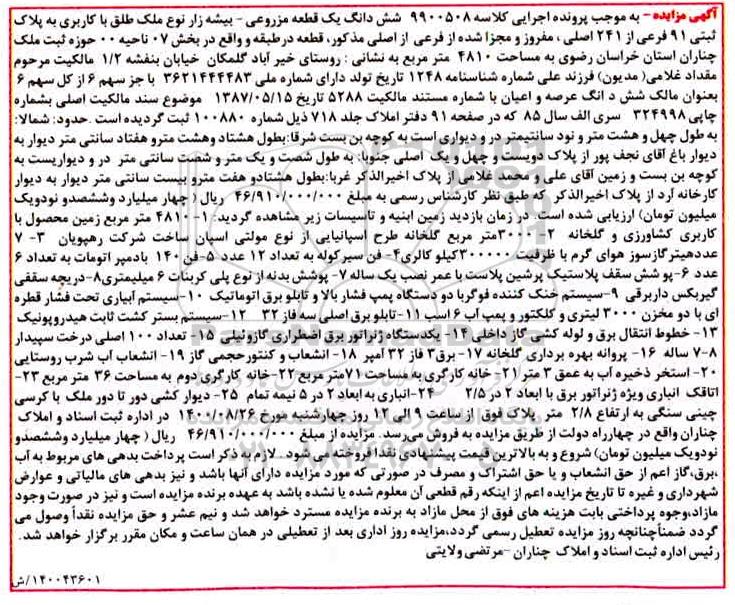 آگهی مزایده - به موجب پرونده اجرایی کلاسه ۹۹۰۰۵۰۸ شش دانگ یک قطعه مزروعی - بیشه زار نوع ملک طلق با کاربری به پلاک
ثبتی ۹۱ فرعی از ۲۴۱ اصلی ، مفروز و مجزا شده از فرعی از اصلی مذکور، قطعه در طبقه و واقع در بخش ۰۷ ناحیه ۰۰ حوزه ثبت ملک
چناران استان خراسان رضوی به مساحت ۴۸۱۰ متر مربع به نشانی : روستای خیر آباد گلمکان خیابان بنفشه ۱/۲ مالکیت مرحوم
مقداد غلامی( مدیون) فرزند علی شماره شناسنامه ۱۲۴۸ تاریخ تولد دارای شماره ملی ۳۶۲۱۴۴۴۴۸۳ با جز سهم ۶ از کل سهم ۶
بعنوان مالک شش د انگ عرصه و اعیان با شماره مستند مالکیت ۵۲۸۸ تاریخ ۱۳۸۷/۰۵/۱۵ موضوع سند مالکیت اصلی بشماره
چاپی ۳۲۴۹۹۸ سری الف سال ۸۵ که در صفحه ۹۱ دفتر املاک جلد ۷۱۸ ذیل شماره ۱۰۰۸۸۰ ثبت گردیده است .حدود: شمالا:
به طول چهل و هشت متر و نود سانتیمتر در و دیواری است به کوچه بن بست شرقا:بطول هشتاد وهشت مترو هفتاد سانتی متر دیوار به
دیوار باغ آقای نجف پور از پلاک دویست و چهل و یک اصلی جنوبا: به طول شصت و یک متر و شصت سانتی متر در و دیواریست به
کوچه بن بست و زمین آقای علی و محمد غلامی از پلاک اخیرالذکر غربا:بطول هشتادو هفت مترو بیست سانتی متر دیوار به دیوار
کارخانه آرد از پلاک اخیرالذکر که طبق نظر کارشناس رسمی به مبلغ ۴۶/۹۱۰/۰۰۰/۰۰۰ ریال ( چهار میلیارد وششصدو نودویک
میلیون تومان) ارزیابی شده است. در زمان بازدید زمین ابنیه و تاسیسات زیر مشاهده گردید: ۱- ۴۸۱۰ متر مربع زمین محصول با
کاربری کشاورزی و گلخانه ۲- ۳۰۰۰متر مربع گلخانه طرح اسپانیایی از نوع مولتی اسپان ساخت شرکت رهپویان ۳- ۷
عددهیترگازسوز هوای گرم با ظرفیت ۳۰۰۰۰۰کیلو کالری۴- فن سیرکوله به تعداد ۱۲ عدد ۵-فن ۱۴۰ بادمپر اتومات به تعداد ۶
عدد ۶-پو شش سقف پلاستیک پرشین پلاست با عمر نصب یک ساله ۷- پوشش بدنه از نوع پلی کربنات ۶ میلیمتری۸-دریچه سقفی
گیربکس داربرقی ۹-سیستم خنک کننده فوگربا دو دستگاه پمپ فشار بالا و تابلو برق اتوماتیک ۱۰-سیستم آبیاری تحت فشار قطره
ای با دو مخزن ۳۰۰۰ لیتری و کلکتور و پمپ آب ۶ اسب ۱۱-تابلو برق اصلی سه فاز ۳۲ ۱۲-سیستم بستر کشت ثابت هیدروپونیک
۱۳- خطوط انتقال برق و لوله کشی گاز داخلی ۱۴- یکدستگاه ژنراتور برق اضطراری گازوئیلی ۱۵- تعداد ۱۰۰ اصلی درخت سپیدار
۷-۸ ساله ۱۶- پروانه بهره برداری گلخانه ۱۷- برق۳ فاز ۳۲ آمپر ۱۸- انشعاب و کنتورحجمی گاز ۱۹- انشعاب آب شرب روستایی
۲۰- استخر ذخیره آب به عمق ۳ متر ۲۱- خانه کارگری به مساحت ۷۱متر مربع ۲۲-خانه کارگری دوم به مساحت ۳۶ متر مربع ۲۳-
اتاقک انباری ویژه ژنراتور برق با ابعاد ۲ در ۲/۵ ۲۴-انباری به ابعاد ۲ در ۵ نیمه تمام ۲۵- دیوار کشی دور تا دور ملک با کرسی
چینی سنگی به ارتفاع ۲/۸ متر پلاک فوق از ساعت ۹ الی ۱۲ روز چهارشنبه مورخ ۱۴۰۰/۰۸/۲۶ در اداره ثبت اسناد و املاک
چناران واقع در چهارراه دولت از طریق مزایده به فروش می رسد. مزایده از مبلغ ۴۶/۹۱۰/۰۰۰/۰۰۰ ریال ( چهار میلیارد وششصدو
نودویک میلیون تومان) شروع و به بالاترین قیمت پیشنهادی نقدا فروخته می شود. لازم به ذکر است پرداخت بدهی های مربوط به آب
،برق،گاز اعم از حق انشعاب و یا حق اشتراک و مصرف در صورتی که مورد مزایده دارای آنها باشد و نیز بدهی های مالیاتی و عوارض
شهرداری و غیره تا تاریخ مزایده اعم از اینکه رقم قطعی آن معلوم شده یا نشده باشد به عهده برنده مزایده است و نیز در صورت وجود
مازاد،وجوه پرداختی بابت هزینه های فوق از محل مازاد به برنده مزایده مسترد خواهد شد و نیم عشر و حق مزایده نقداً وصول می
گردد ضمناًچنانچه روز مزایده تعطیل رسمی گردد،مزایده روز اداری بعد از تعطیلی در همان ساعت و مکان مقرر برگزار خواهد شد.
رئیس اداره ثبت اسناد و املاک چناران -مرتضی ولایتی
۱۴۰۰۴۳۶۰۱/ش